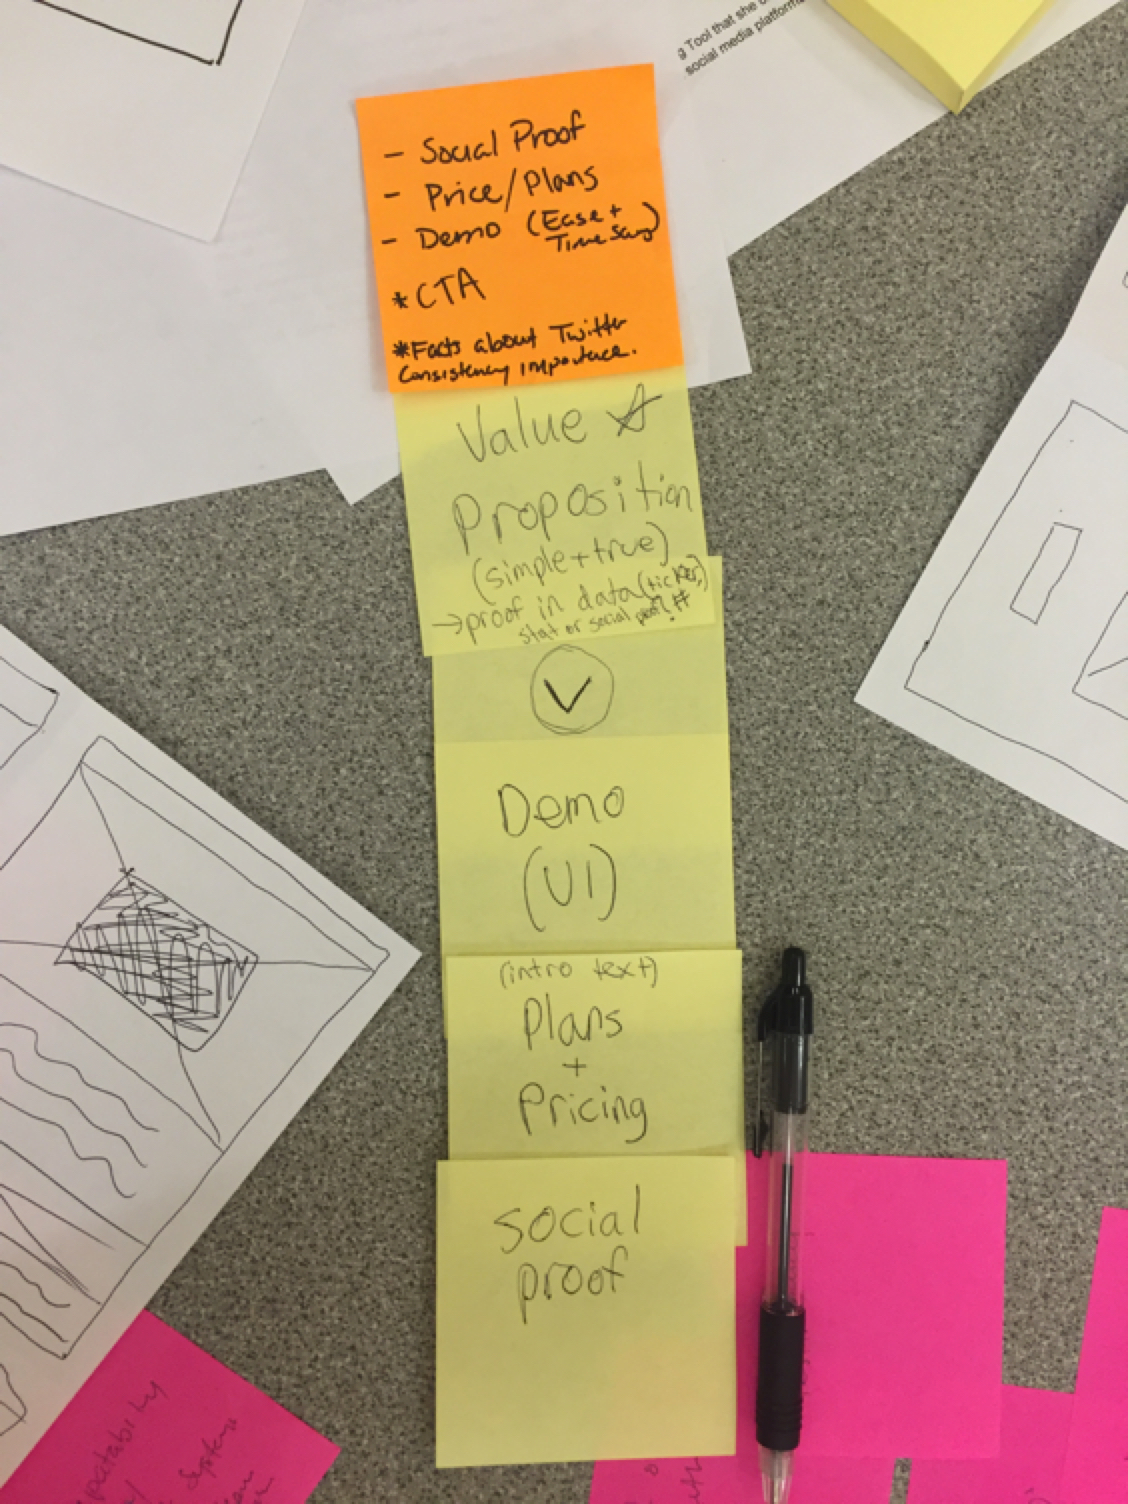 g Tool that she
social media platform
- Social Proof
- Price/Plans
- Demo (Ease +
Time Savg)
*CTA
*Facts about Twitter
Consistency importance.
Value
Proposition
(simple + true)
→ proof in data (ticker,)
stat or social proof #
Demo
(UI)
(intro text)
Plans
+
Pricing
social
proof
patability
System